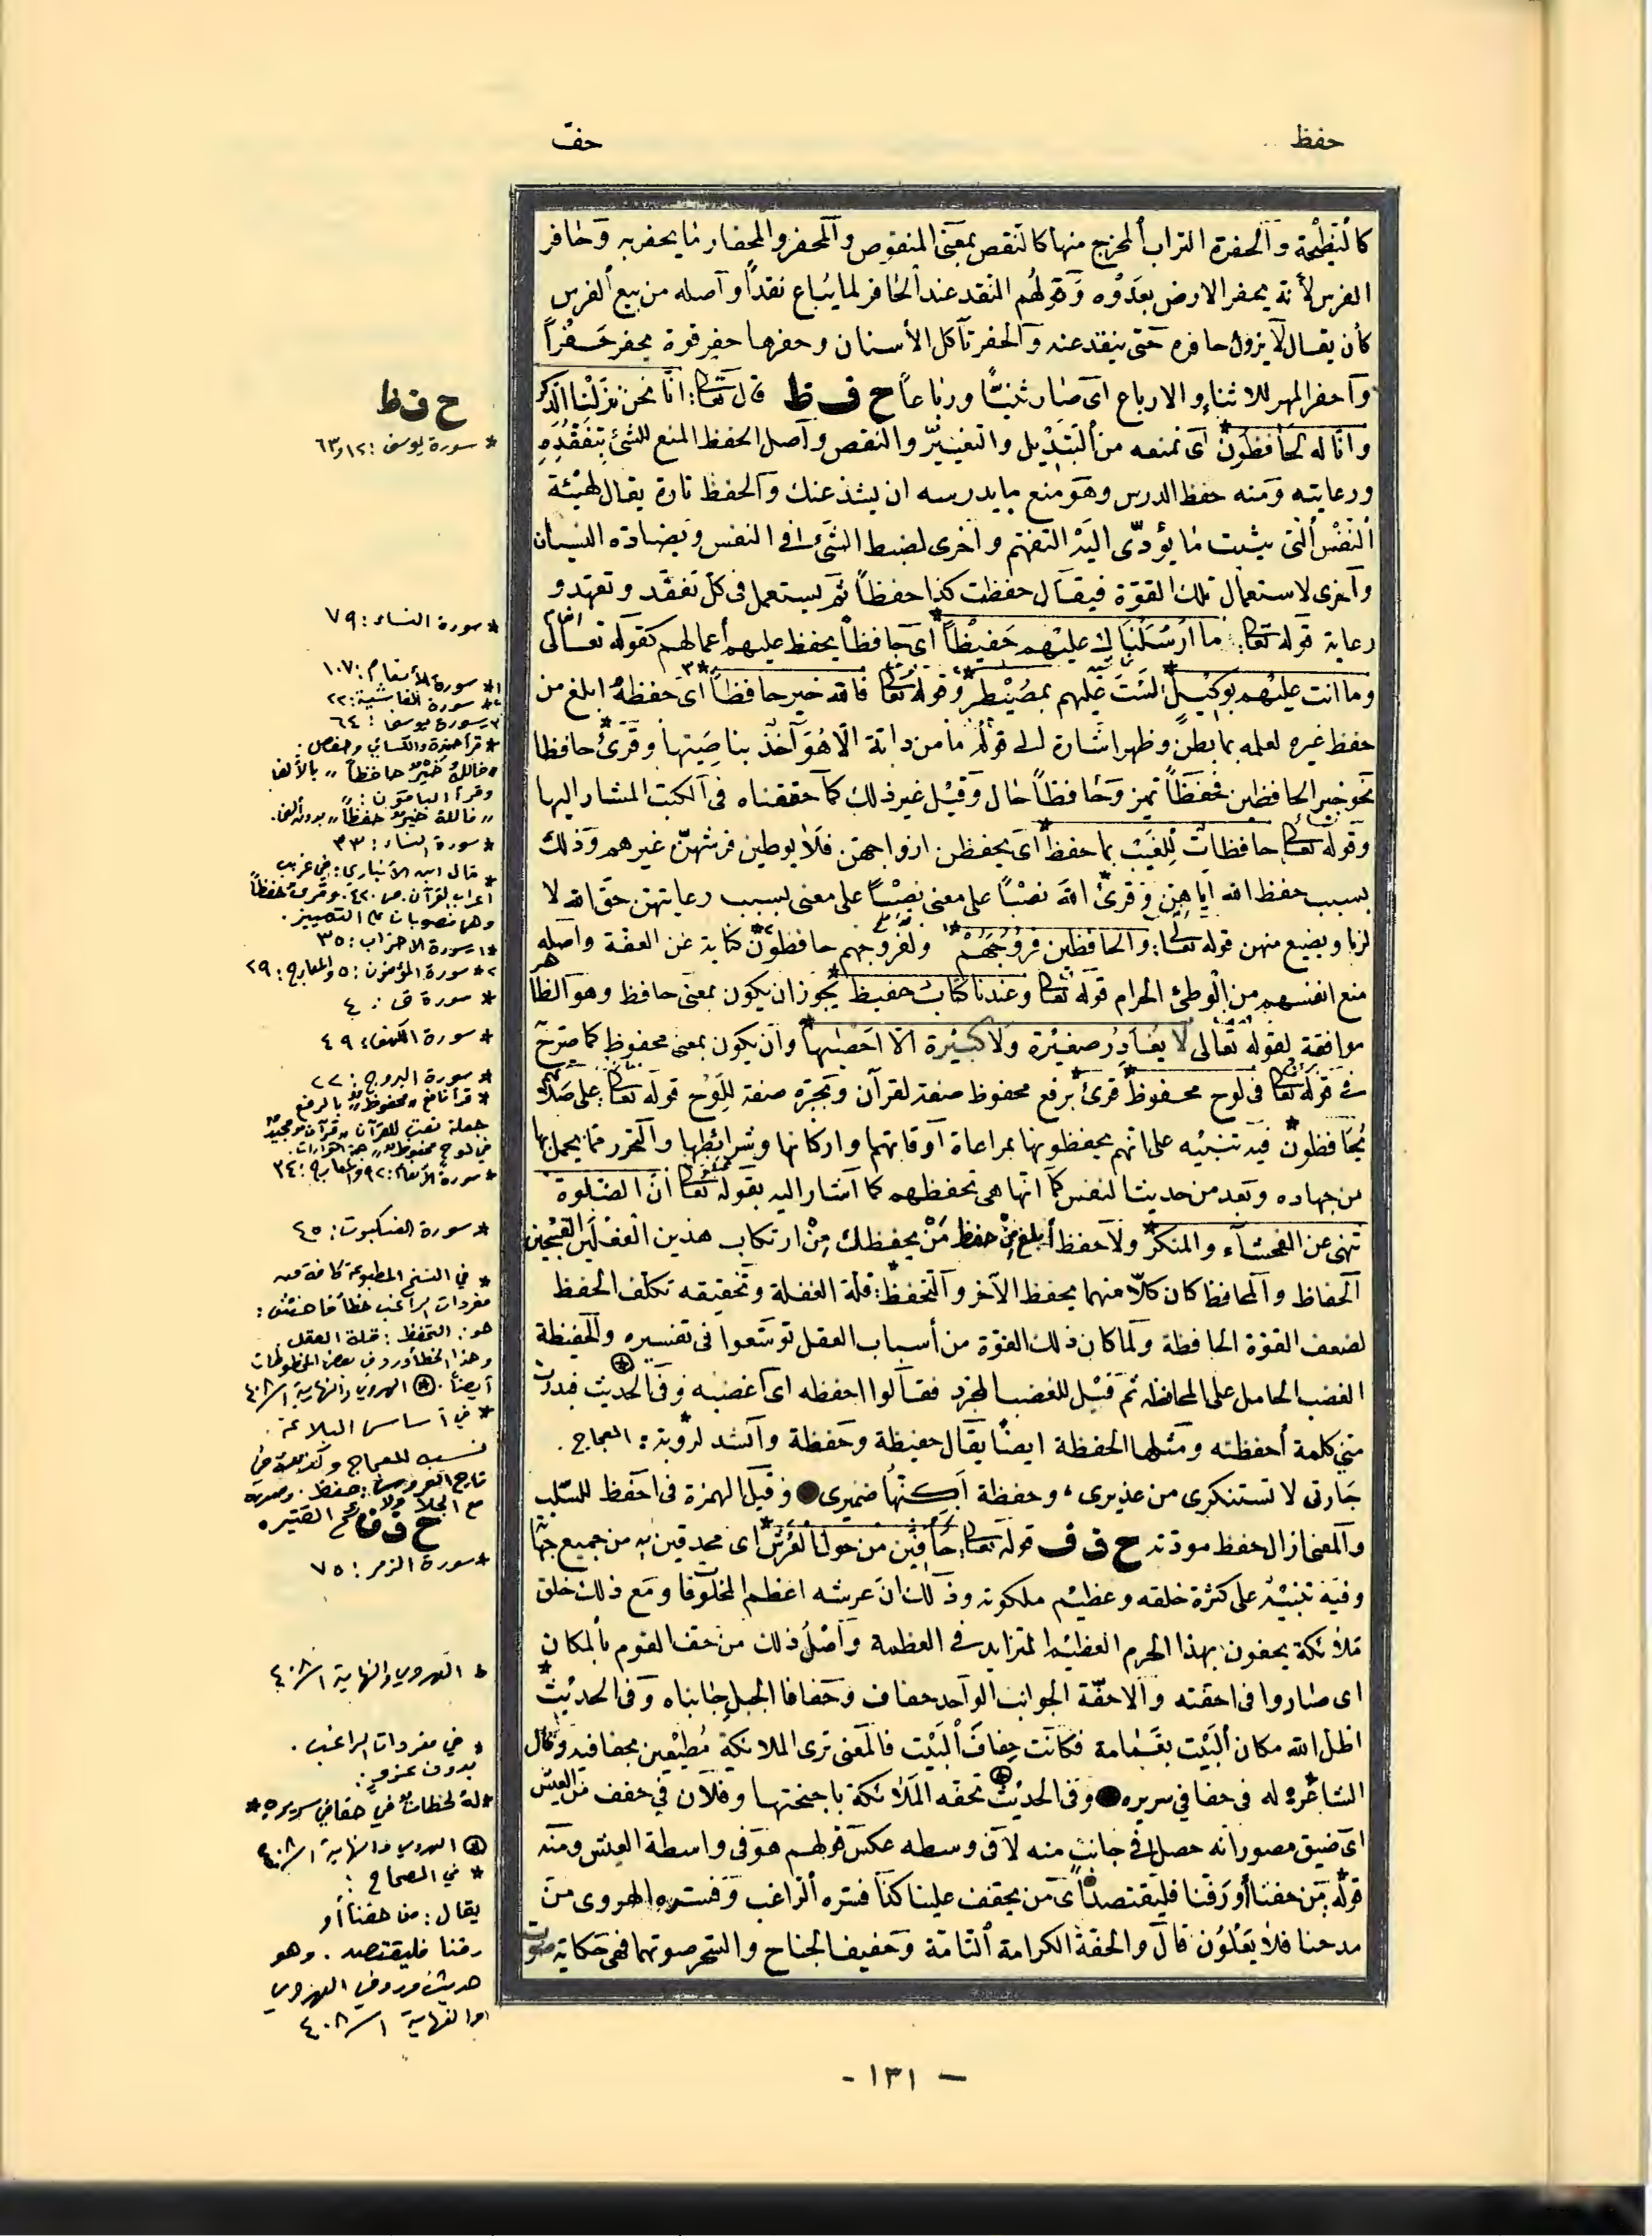 حفظ
حف
كالنطيحة والحفرة التراب المخرج منها كالنقص بمعنى المنقوص والمحفر والمحفار ما يحفر به وحافر
الفرس لأنه يحفر الارض بعدوه وقولهم النقد عند الحافر لما يباع نقداً وآصله من بيع الفرس
كأن يقال لا يزول حافره حتى ينقد عنه والحفر تآكل الأسنان وحفرها حفر قوة يحفر حفراً
وآحفر المهر للاثناء والارباع اى صار ثنيّا ورباعاً ح ف ظ قال تعا: انا نحن نزلنا الذكر
وانا له لحافظون* آى نمنعه من التبديل والتغيير والنقص وآصل الحفظ المنع للشئ بتفقده
ورعايته ومنه حفظ الدرس وهو منع ما يدرسه ان يشذ عنك والحفظ تارة يقال لهيئة
النفس التى يثبت ما يؤدّى اليه التفهّم وآخرى لضبط الشئ فى النفس ويضادّه النسيان
وآخرى لاستعمال تلك القوّة فيقال حفظت كذا حفظاً ثم يستعمل فى كلّ تفقّد وتعهّد و
رعاية قوله تعا: ما ارسلناك عليهم حفيظاً* آى حافظاً يحفظ عليهم أعمالهم كقوله تعالى
وما انت عليهم بوكيل* لست عليهم بمصيطر* وقوله تعا فالله خير حافظاً*٣ آى حفظه ابلغ من
حفظ غيره لعلمه بما بطن وظهر اشارة الى قوله ما من دابة الّا هو آخذ بناصيتها وقرئ* حافظا
نحو خير الحافظين فحفظاً تميز وحافظاً حال وقيل غير ذلك كما حققناه فى الكتب المشار اليها
وقوله تعا حافظات للغيب بما حفظ* آى يحفظن ازواجهن فلا يوطين فرشهنّ غيرهم وذلك
بسبب حفظ الله اياهن وقرئ* الله نصباً على معنى بسبب رعايتهن حق الله لا
لزيا ويضيع منهن قوله تعا: والحافظين فروجهم*١ ولفروجهم حافظون*٢ كناية عن العفّة وآصله
منع انفسهم من الوطئ الحرام قوله تعا وعندنا كتاب حفيظ* يجوز ان يكون بمعنى حافظ وهو الظاهر
موافقة لقوله تعالى لا يغادر صغيرة ولا كبيرة الا احصيها* وان يكون بمعنى محفوظ كما صرّح
فى قوله تعا فى لوح محفوظ* قرئ* برفع محفوظ صفة لقرآن وبجره صفة للوح قوله تعا: على صلاتهم
يحافظون* فيه تنبيه على انهم يحفظونها بمراعاة آوقاتها واركانها وشرائطها والتحرر مما يخل بها
من جهاده وبعد من حديث النفس كما انها هى تحفظهم كما آشار اليه بقوله تعا انّ الصلوة
تنهى عن الفحشاء والمنكر* ولا حفظ أبلغ من حفظ من يحفظك من ارتكاب هذين الفعلين القبيحين
الحفاظ والمحافظ كان كلّا منهما يحفظ الآخر والتحفظ*: قلة الغفلة وتحقيقه تكلّف الحفظ
لضعف القوّة الحافظة ولما كان ذلك القوّة من أسباب العقل توسّعوا فى تفسيره والحفيظة
الغضب الحامل على المحافظه ثم قيل للغضب المجرد فقالوا احفظه اى آغضبه وفى الحديث⊛ فبدرت
منّى كلمة أحفظته ومثلها الحفظة ايضاً يقال حفيظة وحفظة وآنشد لروبة*: العجاج.
جارتى لا تستنكرى من عذيرى، وحفظة آكنّها ضميرى● وقيل الهمزة فى احفظ للسّلب
والمعنى ازال حفظ مودّته ح ف ف قوله تعا: حافّين من حول العرش* اى محدقين به من جميع جهاته
وفيه تنبيه على كثرة خلقه وعظيم ملكوته وذلك ان عرشه اعظم المخلوقا ومع ذلك خلق
ملائكة يحفون بهذا الجرم العظيم المتزايد فى العظمة وآصل ذلك من حف القوم بالمكان
اى صاروا فى احفته والاحفّة الجوانب الوآحد حفاف وحفافا الجبل جانباه وفى الحديث*
اظل الله مكان البيت بغمامة فكانت حفاف البيت فالمعنى ترى الملائكة مطيفين بحفافيه وقال
الشاعر*: له فى حفافي سريره● وفى الحديث⊛ تحفه الملائكة باجنحتها وفلان فى حفف من العيش
اى ضيق مصور انه حصل فى جانب منه لا فى وسطه عكس قولهم هو فى واسطة العيش ومنه
قوله* من حفنا أو رفنا فليقتصد● آى من يحفف علينا كذا فسّره الراغب وفسّره الهروى من
مدحنا فلا يغلون قال والحفة الكرامة التامّة وحفيف الجناح والشجر صوتهما فهى حكاية صوت
ح ف ظ
* سورة يوسف: ١٢ و ٦٣
* سورة النساء: ٧٩
١* سورة الأنعام: ١٠٧
٢* سورة الغاشية: ٢٢
٣- سورة يوسف: ٦٤
* قرأ حمزة والكسائي وحفص.
«فالله خير حافظاً» بالألف
وقرأ الباقون:
«فالله خير حفظاً» بدون ألف.
* سورة النساء: ٣٣
* قال ابن الأنباري: في غريب
اعراب القرآن ص ٤٢٠. وقرئ حفظاً
وهما منصوبات على التمييز.
١* سورة الاحزاب: ٣٥
٢* سورة المؤمنون: ٥ والمعارج: ٢٩
* سورة ق: ٤
* سورة الكهف: ٤٩
* سورة البروج: ٢٢
* قرأ نافع «محفوظ» بالرفع
جعله نعتاً للقرآن «قرآن مجيد
في لوح محفوظ»
* سورة الأنعام: ٩٢ والمعارج: ٣٤
* سورة العنكبوت: ٤٥
* في النسخ المطبوعة كافة من
مفردات الراغب خطأ فاحش:
هو: التحفظ: قلة العقل.
وهذا الخطأ ورد في بعض المخطوطات
أيضاً. ⊛ الهروي والنهاية ١/٤٠٨
* في أساس البلاغة.
نسبه للعجاج وكذلك في
تاج العروس: حفظ.
ح ف ف
* سورة الزمر: ٧٥
* الهروي والنهاية ١/٤٠٨
* في مفردات الراغب.
بدون عزو:
*له لحظات في حفافي سريره*
⊛ الهروي والنهاية ١/٤٠٨
* في الصحاح:
يقال: من حفنا أو
رفنا فليقتصد. وهو
حديث ورد في الهروي
والنهاية ١/٤٠٨
- ١٣١ -